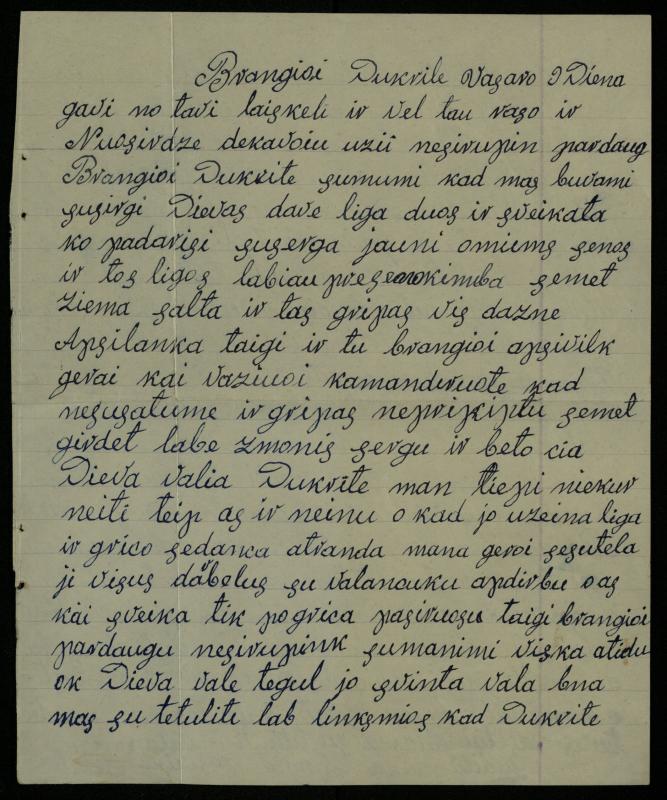 Brangioi Dukrile Vasaro 9 Diena
gavi no tavi laiskeli ir vel tau raso ir
Nuosirdze dekavoiu uzii nesirupin pardaug
Brangioi Dukrite sumumi kad mas buvami
susirgi Dievas dave liga duos ir sveikata
ko padarisi suserga jauni omiems senos
ir tos ligos labiau pre kimba semet
ziema salta ir tas gripas vis dazne
Apsilanka taigi ir tu brangioi apsivilk
gerai kai vaziuoi kamandiruote kad
nesusatume ir gripas neprikiptu semet
girdet labe zmonis sergu ir beto cia
Dieva valia Dukrite man tiepi niekur
neiti teip as ir neinu o kad jo uzeina liga
ir grico sedanca atranda mana geroi sesutela
ji visus dabolus su valancuku apdirbu o as
kai sveika tik po grica pasiruosu taigi brangioi
pardaugu nesirupink sumanimi viska atidu
ok Dieva vale tegul jo svinta vala bna
mas su tetuliti lab linksmios kad Dukrite